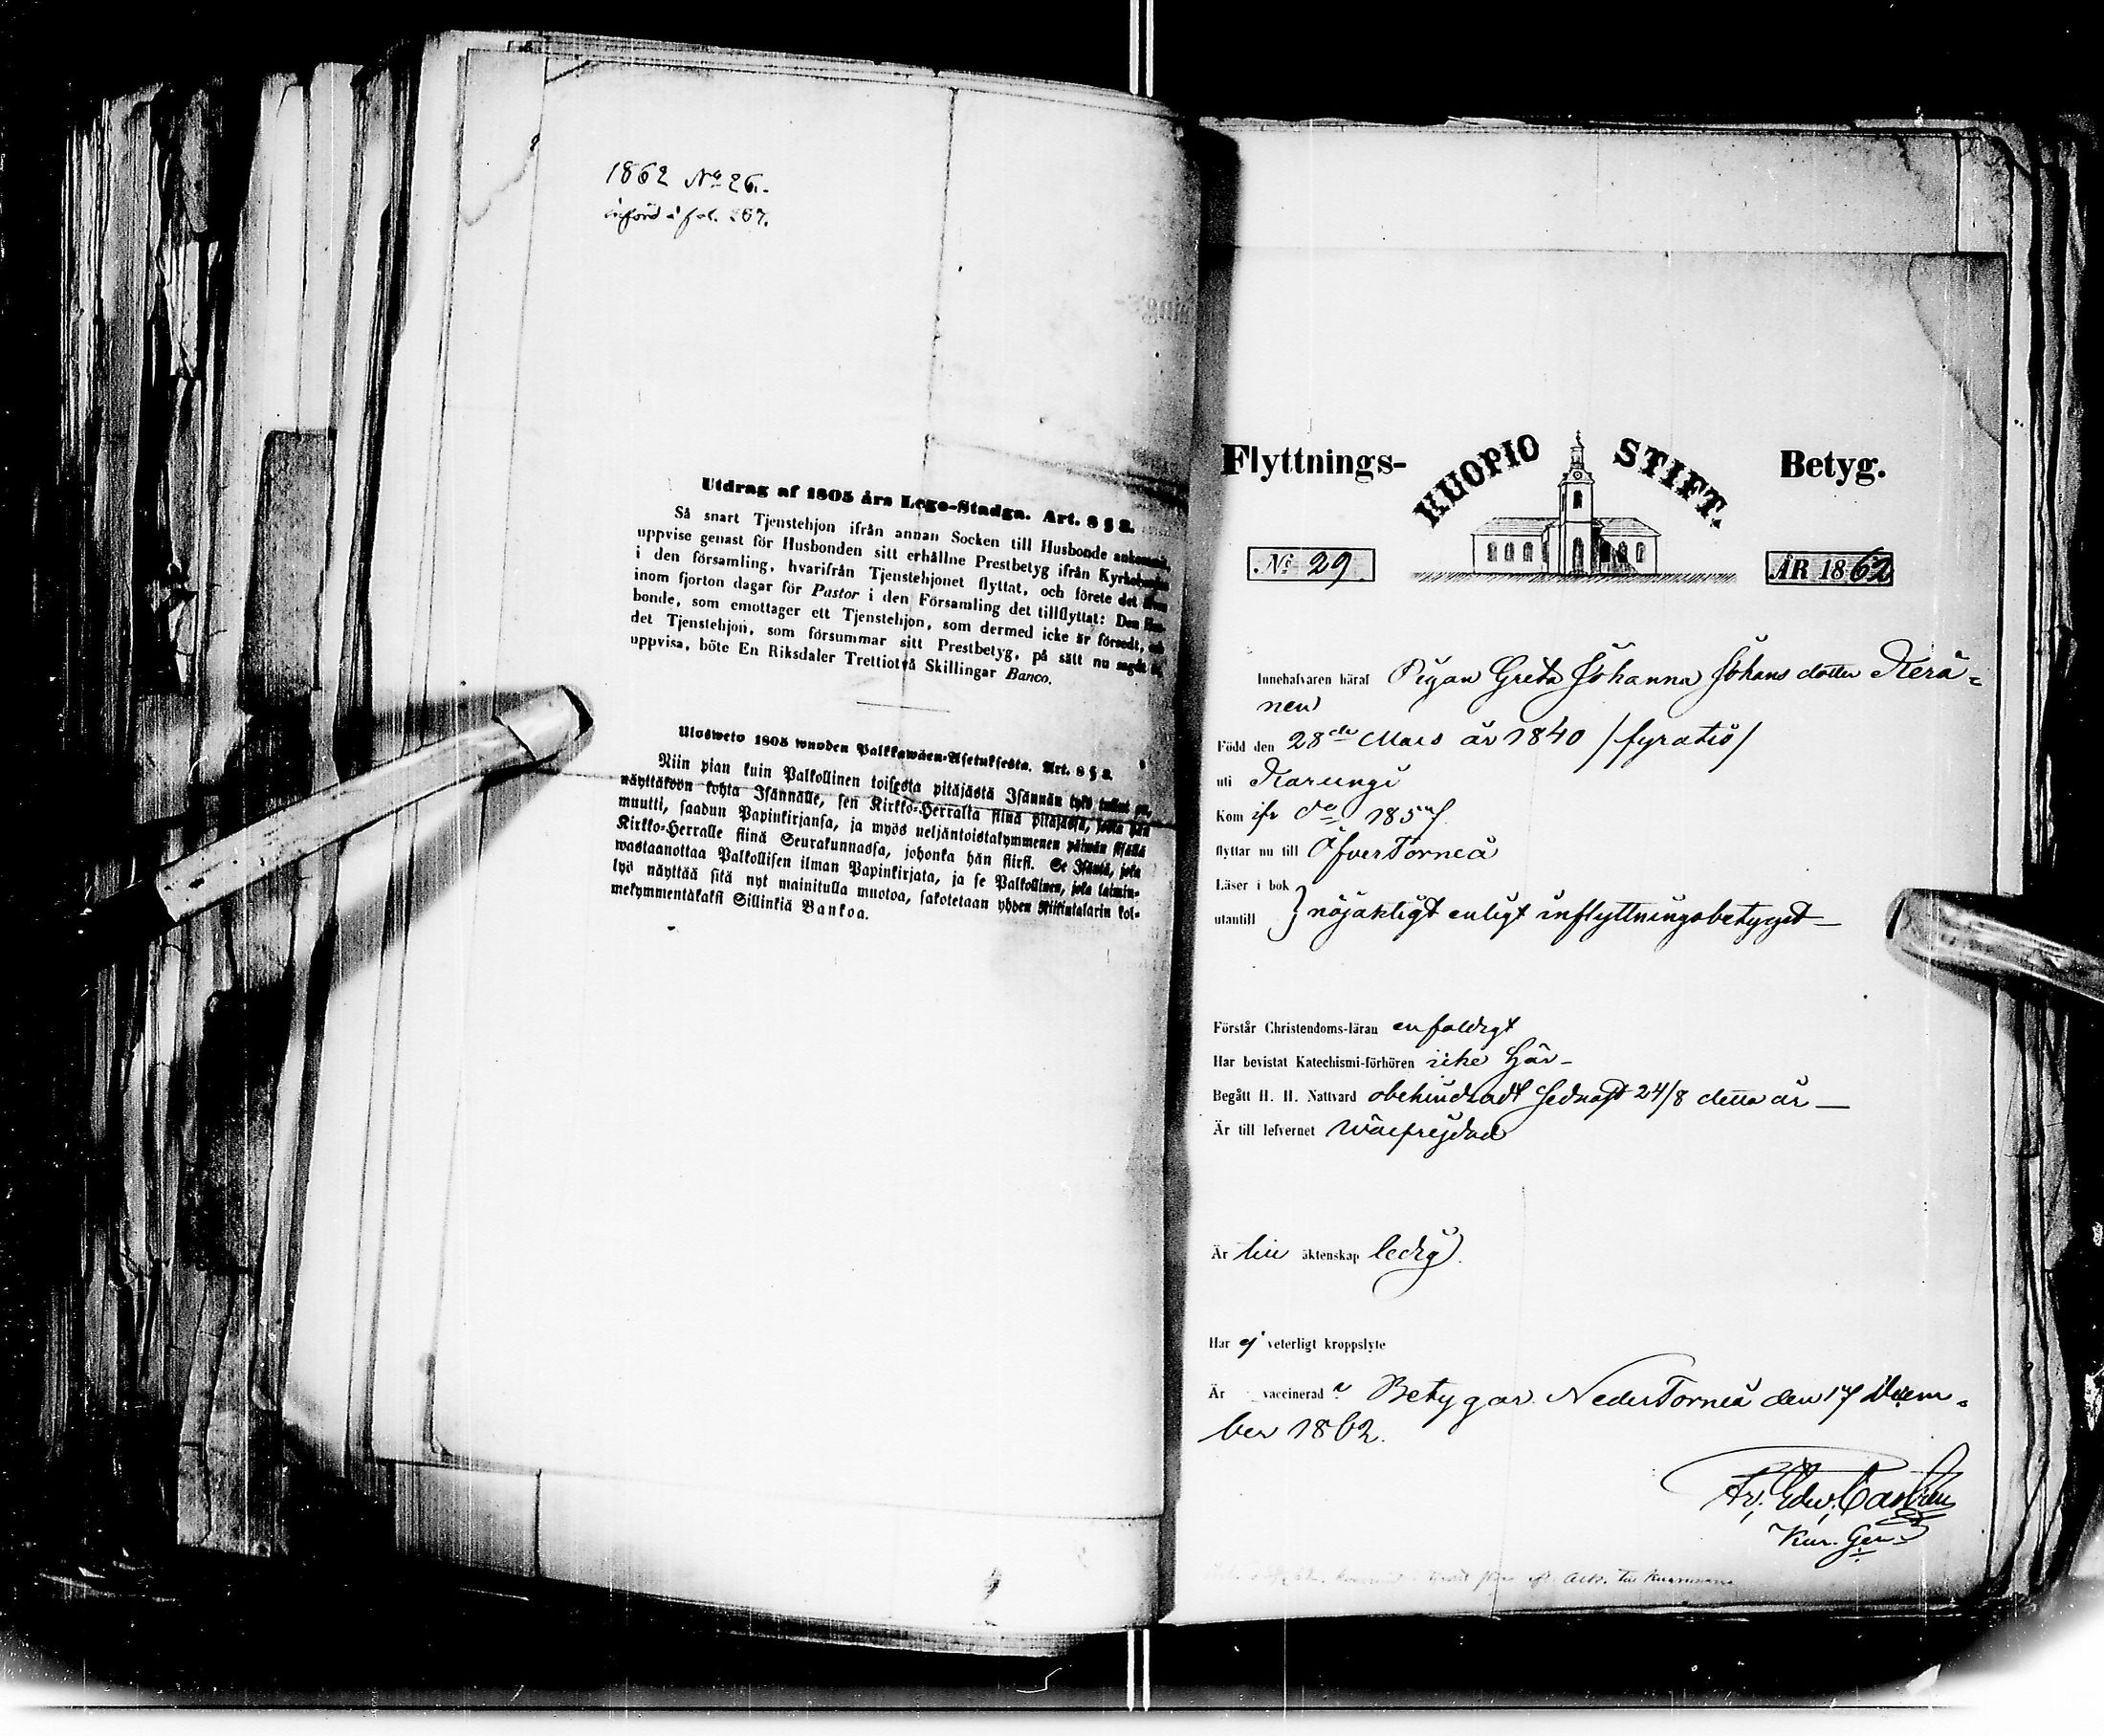 1862 No 26.
införd å fol. 267.
Utdrag af 1805 års Lego-Stadga. Art. 8 § 2.
Så snart Tjenstehjon ifrån annan Socken till Husbonde ankommit,
uppvise genast för Husbonden sitt erhållne Prestbetyg ifrån Kyrkoherden
i den församling, hvarifrån Tjenstehjonet flyttat, och förete det
inom fjorton dagar för Pastor i den Församling det tillflyttat: Den Hus-
bonde, som emottager ett Tjenstehjon, som dermed icke är försedt, och
det Tjenstehjon, som försummar sitt Prestbetyg, på sätt nu sagdt är,
uppvisa, böte En Riksdaler Trettiotvå Skillingar Banco.
Ulosweto 1805 wuoden Palkkawäen-Asetuksesta. Art. 8 § 2.
Niin pian kuin Palkollinen toisesta pitäjästä Isännän tykö tullut on,
näyttäköön kohta Isännälle, sen Kirkko-Herralta siinä pitäjässä, josta hän
muutti, saadun Papinkirjansa, ja myös neljäntoistakymmenen päiwän sisällä
Kirkko-Herralle siinä Seurakunnassa, johonka hän siirsi. Se Isäntä, joka
wastaanottaa Palkollisen ilman Papinkirjata, ja se Palkollinen, joka laimin-
lyö näyttää sitä nyt mainitulla muotoa, sakotetaan yhden Riikintalarin kol-
mekymmentäkaksi Sillinkiä Bankoa.
Flyttnings- KUOPIO STIFT. Betyg.
No 29 ÅR 1862
Innehafvaren häraf Pigan Greta Johanna Johans dotter Kerä-
nen
Född den 28de Mars år 1840 /fyratio/
uti Karungi
Kom ifr do 1857
flyttar nu till ÖfverTorneå
Läser i bok
utantill } nöjaktigt enligt inflyttningsbetyget—
Förstår Christendoms-läran enfaldigt
Har bevistat Katechismi-förhören icke här—
Begått H. H. Nattvard obehindradt sednast 24/8 detta år—
Är till lefvernet wälfrejdad
Är till äktenskap ledig.
Har ej veterligt kroppslyte
Är vaccinerad Betygar NederTorneå den 17 Decem-
ber 1862.
Edw. Castrén